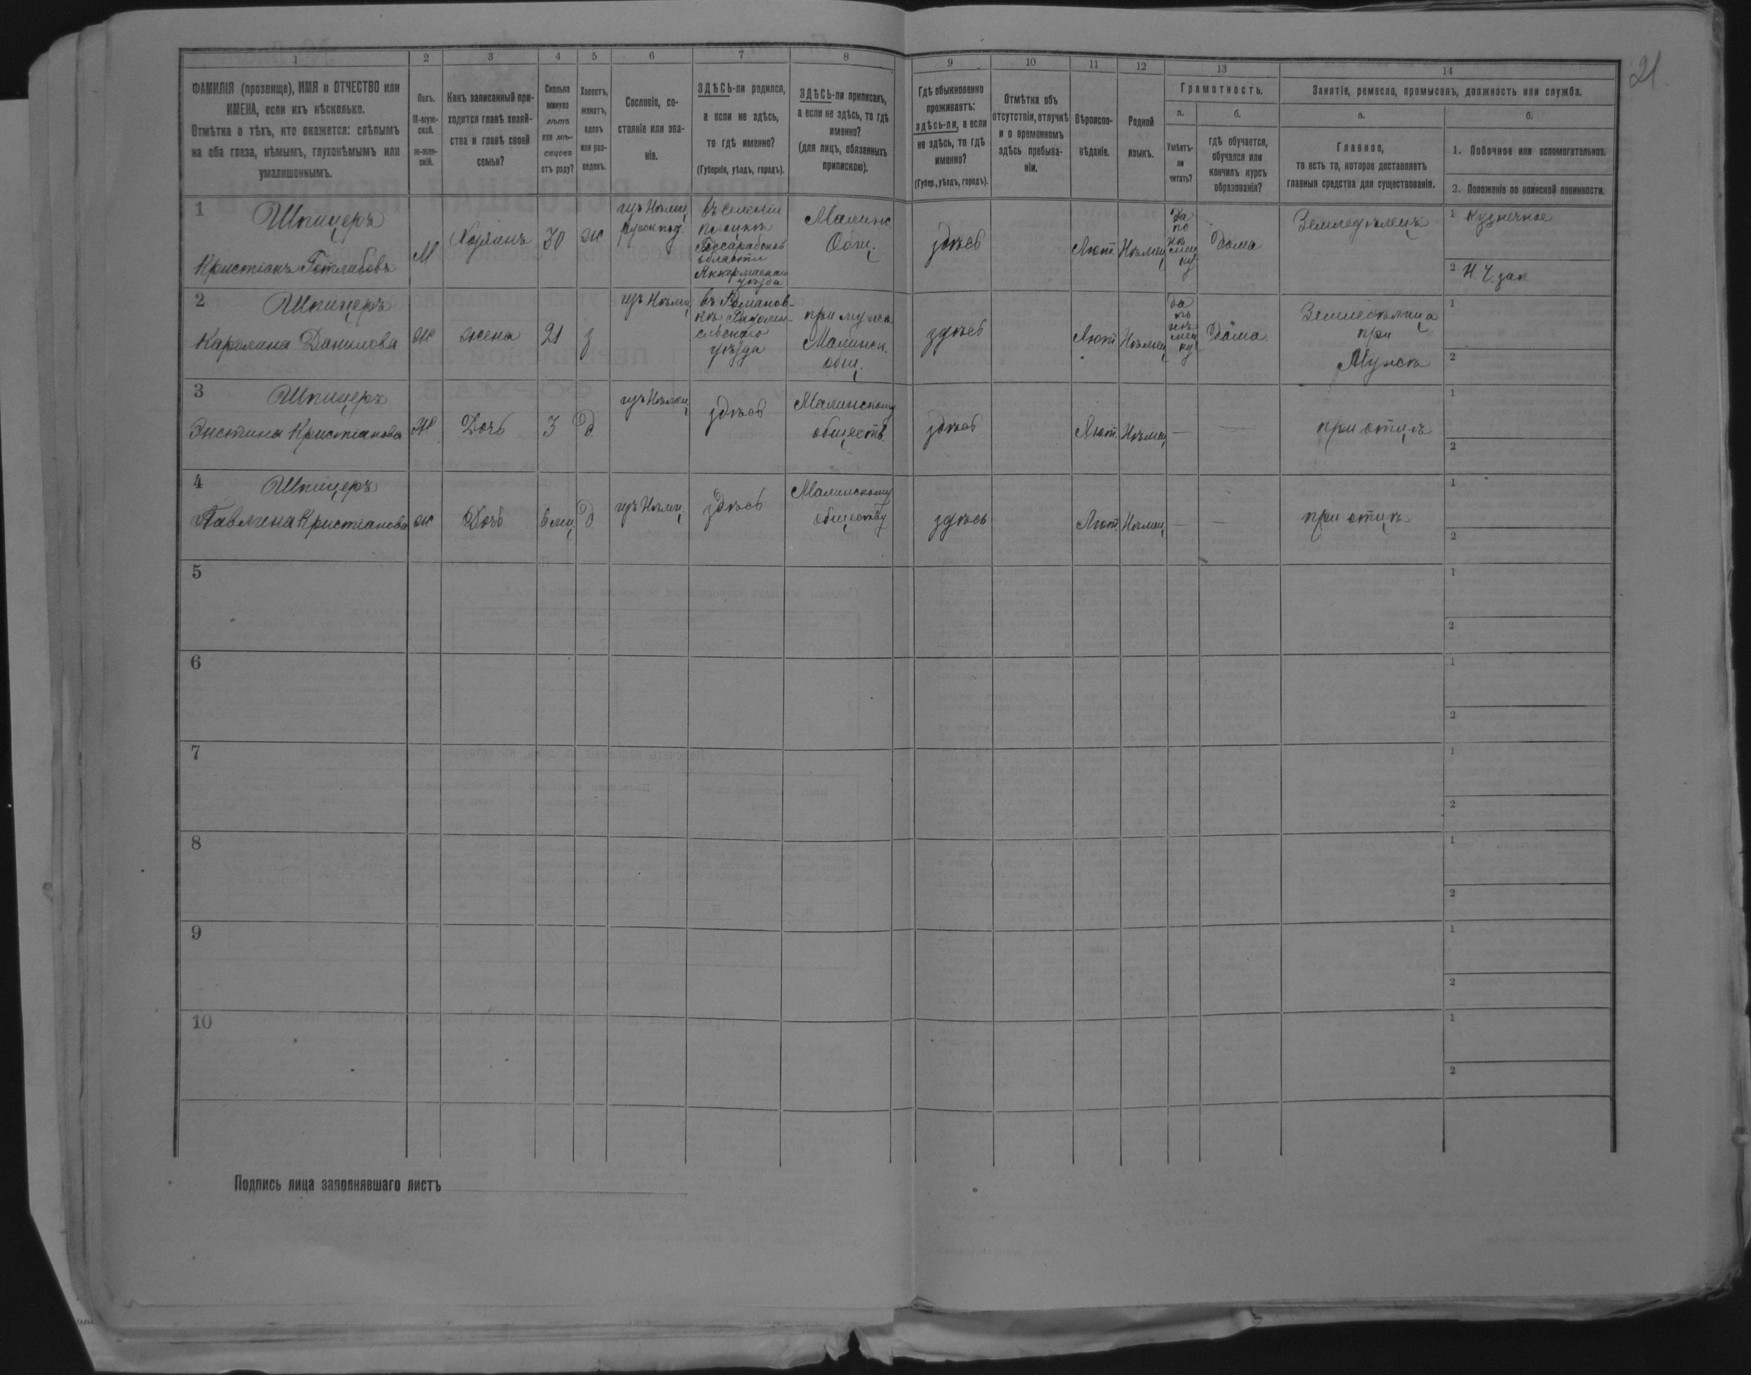 21.
1 2 3 4 5 6 7 8 9 10 11 12 13 14
ФАМИЛІЯ (прозвище), ИМЯ и ОТЧЕСТВО или
ИМЕНА, если ихъ нѣсколько.
Отмѣтка о тѣхъ, кто окажется: слѣпымъ
на оба глаза, нѣмымъ, глухонѣмымъ или
умалишеннымъ.
Полъ.
М-муж-
ской.
Ж-жен-
скій.
Какъ записанный при-
ходится главѣ хозяй-
ства и главѣ своей
семьи?
Сколько
минуло
лѣтъ
или мѣ-
сяцевъ
отъ роду?
Холостъ,
женатъ,
вдовъ
или раз-
веденъ.
Сословіе, со-
стояніе или зва-
ніе.
ЗДѢСЬ-ли родился,
а если не здѣсь,
то гдѣ именно?
(Губернія, уѣздъ, городъ).
ЗДѢСЬ-ли приписанъ,
а если не здѣсь, то гдѣ
именно?
(для лицъ, обязанныхъ
припискою).
Гдѣ обыкновенно
проживаетъ:
здѣсь-ли, а если
не здѣсь, то гдѣ
именно?
(Губер., уѣздъ, городъ).
Отмѣтка объ
отсутствіи, отлучкѣ
и о временномъ
здѣсь пребыва-
ніи.
Вѣроиспо-
вѣданіе.
Родной
языкъ.
Грамотность.
а.
Умѣетъ-
ли
читать?
б.
гдѣ обучается,
обучался или
кончилъ курсъ
образованія?
Занятіе, ремесло, промыселъ, должность или служба.
а.
Главное,
то есть то, которое доставляетъ
главныя средства для существованія.
б.
1. Побочное или вспомогательное.
2. Положеніе по воинской повинности.
1
Шпицеръ
Кристіанъ Готлибовъ
М
Хозяинъ
30
ж
изъ Нѣмец
въ селеніи
Бессарабской
области
Аккерманскаго
уѣзда
Малинс
Общ.
здѣсь
Лют
Нѣмец
да
по
нѣ
мец
ку
Дома
Земледѣлецъ
1 Кузнечное
2
2
Шпицеръ
Каролина Данилова
Ж
жена
21
з
изъ Нѣмец
въ Романов-
уѣзда
при мужѣ
Малинск.
общ.
здѣсь
Лют
Нѣмец
да
по
нѣ
мец
ку
Дома
при
Мужѣ
1
2
3
Шпицеръ
Кристіанова
Ж
Дочь
3
д
изъ Нѣмец
здѣсь
Малинскому
обществ
здѣсь
Лют
Нѣмец
—
—
при отцѣ
1
2
4
Шпицеръ
Павлина Кристіанова
ж
Дочь
6 мец
д
изъ Нѣмец
здѣсь
Малинскому
обществу
здѣсь
Лют
Нѣмец
—
—
при отцѣ
1
2
5
1
2
6
1
2
7
1
2
8
1
2
9
1
2
10
1
2
Подпись лица заполнявшаго листъ